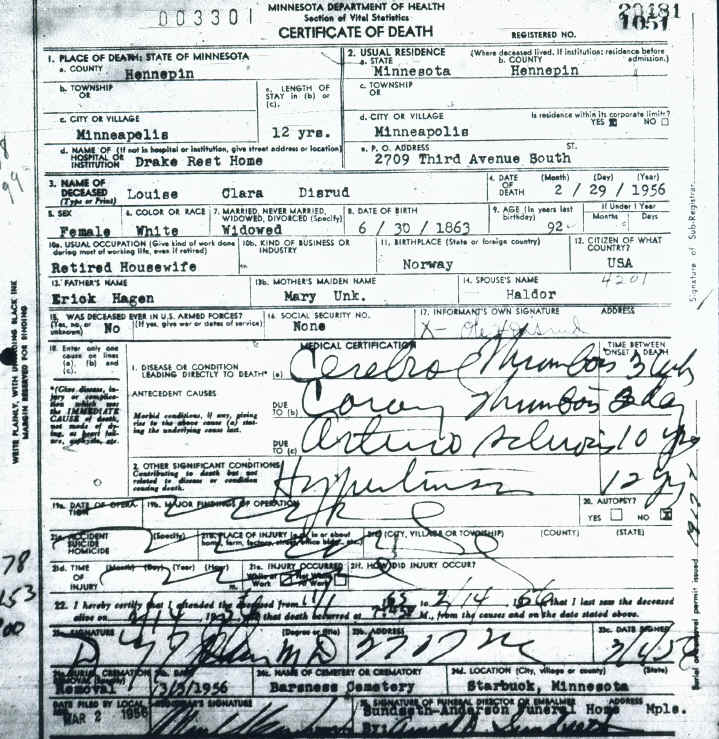 003301
MINNESOTA DEPARTMENT OF HEALTH
Section of Vital Statistics
CERTIFICATE OF DEATH
REGISTERED NO.
20481
1051
1. PLACE OF DEATH: STATE OF MINNESOTA
a. COUNTY Hennepin
2. USUAL RESIDENCE (Where deceased lived. If institution: residence before admission.)
a. STATE Minnesota
b. COUNTY Hennepin
b. TOWNSHIP OR
c. LENGTH OF STAY in (b) or (c).
12 yrs.
c. TOWNSHIP OR
c. CITY OR VILLAGE
Minneapolis
d. CITY OR VILLAGE
Minneapolis
Is residence within its corporate limits?
YES X NO
d. NAME OF (If not in hospital or institution, give street address or location)
HOSPITAL OR INSTITUTION Drake Rest Home
e. P. O. ADDRESS ST.
2709 Third Avenue South
3. NAME OF DECEASED (Type or Print)
Louise Clara Disrud
4. DATE OF DEATH (Month) (Day) (Year)
2 / 29 / 1956
5. SEX
Female
6. COLOR OR RACE
White
7. MARRIED, NEVER MARRIED, WIDOWED, DIVORCED (Specify)
Widowed
8. DATE OF BIRTH
6 / 30 / 1863
9. AGE (In years last birthday)
92
If Under 1 Year
Months Days
10a. USUAL OCCUPATION (Give kind of work done during most of working life, even if retired)
Retired Housewife
10b. KIND OF BUSINESS OR INDUSTRY
11. BIRTHPLACE (State or foreign country)
Norway
12. CITIZEN OF WHAT COUNTRY?
USA
13. FATHER'S NAME
Erick Hagen
13b. MOTHER'S MAIDEN NAME
Mary Unk.
14. SPOUSE'S NAME
Haldor
4201
15. WAS DECEASED EVER IN U.S. ARMED FORCES?
(Yes, no, or unknown) No (If yes, give war or dates of service)
16. SOCIAL SECURITY NO.
None
17. INFORMANT'S OWN SIGNATURE ADDRESS
X-
18. Enter only one cause on lines (a), (b) and (c).
MEDICAL CERTIFICATION
TIME BETWEEN ONSET & DEATH
1. DISEASE OR CONDITION LEADING DIRECTLY TO DEATH* (a) Cerebral Thrombosis
*(Give disease, injury or complication which was the IMMEDIATE CAUSE of death, not mode of dying, as heart failure, asphyxia, etc.
ANTECEDENT CAUSES
Morbid conditions, if any, giving rise to the above cause (a) stating the underlying cause last.
DUE TO (b)
DUE TO (c) 10 yrs
2. OTHER SIGNIFICANT CONDITIONS
Contributing to death but not related to disease or condition causing death.
Hypertension 12 yrs
19a. DATE OF OPERATION
19b. MAJOR FINDINGS OF OPERATION
20. AUTOPSY?
YES NO X
21a. ACCIDENT SUICIDE HOMICIDE (Specify)
21b. PLACE OF INJURY (e.g. in or about home, farm, factory, street, office bldg., etc.)
21c. (CITY, VILLAGE OR TOWNSHIP) (COUNTY) (STATE)
21d. TIME OF INJURY (Month) (Day) (Year) (Hour) m.
21e. INJURY OCCURRED
While at Work Not While At Work
21f. HOW DID INJURY OCCUR?
22. I hereby certify that I attended the deceased from 1/1 to 2/14 1956 that I last saw the deceased
alive on 2/14 that death occurred at M., from the causes and on the date stated above.
23a. SIGNATURE (Degree or title)
M D
23b. ADDRESS
23c. DATE SIGNED
24a. BURIAL, CREMATION, REMOVAL (Specify)
Removal
24b. DATE
3/3/1956
24c. NAME OF CEMETERY OR CREMATORY
Barsness Cemetery
24d. LOCATION (City, village or county) (State)
Starbuck, Minnesota
DATE FILED BY LOCAL REG.
MAR 2 1956
REGISTRAR'S SIGNATURE
25. SIGNATURE OF FUNERAL DIRECTOR OR EMBALMER ADDRESS
Sundseth-Anderson Funeral Home Mpls.
By:
WRITE PLAINLY, WITH UNFADING BLACK INK
MARGIN RESERVED FOR BINDING
Signature of Sub-Registrar
Burial or removal permit issued
78
153